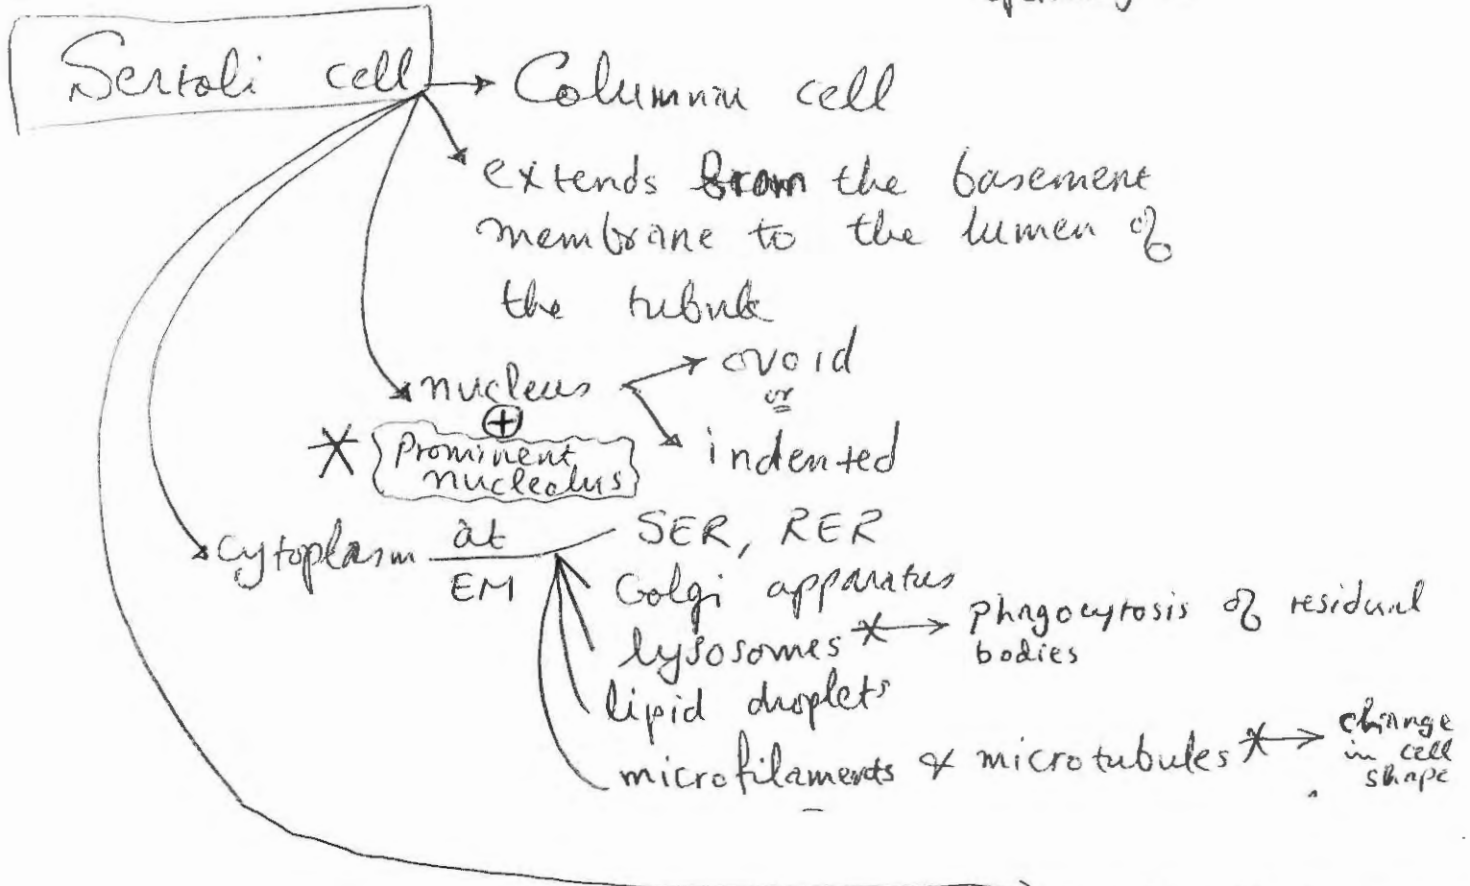 Sertoli cell → Columnar cell
extends from the basement
membrane to the lumen of
the tubule
nucleus → ovoid
or
⊕
* Prominent
nucleolus
indented
cytoplasm at
EM
SER, RER
Golgi apparatus
lysosomes * → phagocytosis of residual
bodies
lipid droplets
microfilaments & microtubules * → change
in cell
shape